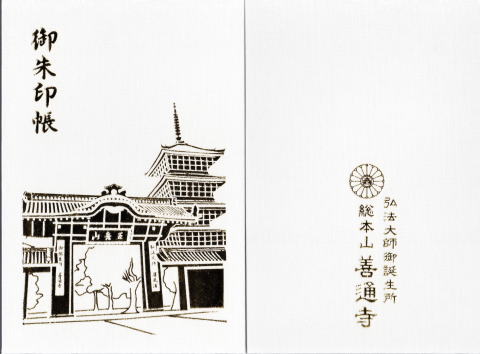 御朱印帳
弘法大師御誕生所
総本山 善通寺